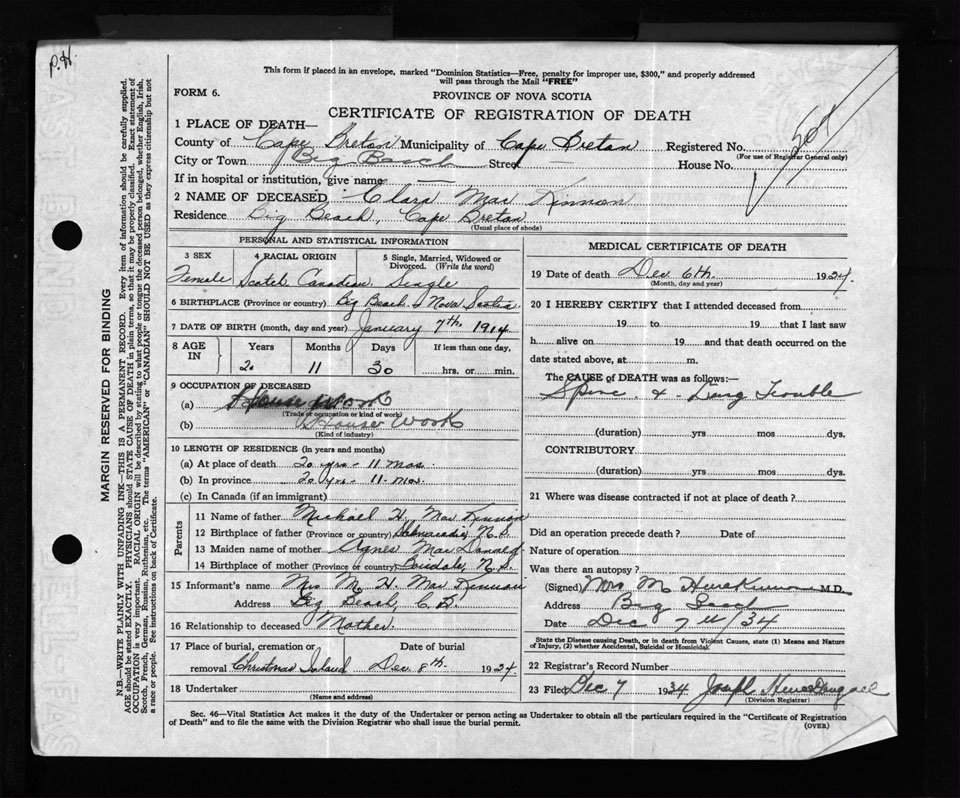 P.H.
This form if placed in an envelope, marked "Dominion Statistics—Free, penalty for improper use, $300," and properly addressed
will pass through the Mail "FREE"
FORM 6.
PROVINCE OF NOVA SCOTIA
CERTIFICATE OF REGISTRATION OF DEATH
1 PLACE OF DEATH—
County of Cape Breton Municipality of Cape Breton Registered No.
(For use of Registrar General only)
City or Town Big Beach Street — House No.
If in hospital or institution, give name —
2 NAME OF DECEASED Clara Mac Kinnon
Residence Big Beach, Cape Breton
(Usual place of abode)
PERSONAL AND STATISTICAL INFORMATION
3 SEX 4 RACIAL ORIGIN 5 Single, Married, Widowed or
Divorced. (Write the word)
Female Scotch Canadian Single
6 BIRTHPLACE (Province or country) Big Beach Nova Scotia
7 DATE OF BIRTH (month, day and year) January 7th 1914
8 AGE IN Years Months Days If less than one day,
20 11 30 hrs. or min.
9 OCCUPATION OF DECEASED
(a) House Work
(Trade or occupation or kind of work)
(b) House Work
(Kind of industry)
10 LENGTH OF RESIDENCE (in years and months)
(a) At place of death 20 yrs - 11 mos.
(b) In province 20 yrs - 11 mos.
(c) In Canada (if an immigrant)
Parents
11 Name of father Michael H. Mac Kinnon
12 Birthplace of father (Province or country) N.S.
13 Maiden name of mother Agnes Mac Donald
14 Birthplace of mother (Province or country) N.S.
15 Informant's name Mrs M. H. Mac Kinnon
Address Big Beach, C.B.
16 Relationship to deceased Mother.
17 Place of burial, cremation or removal Date of burial
Christmas Island Dec. 8th 1924
18 Undertaker
(Name and address)
MEDICAL CERTIFICATE OF DEATH
19 Date of death Dec 6th. 1924.
(Month, day and year)
20 I HEREBY CERTIFY that I attended deceased from
19 to 19 that I last saw
h alive on 19 and that death occurred on the
date stated above, at m.
The CAUSE of DEATH was as follows:—
Spine & Lung Trouble
(duration) yrs mos dys.
CONTRIBUTORY
(duration) yrs mos dys.
21 Where was disease contracted if not at place of death?
Did an operation precede death? Date of
Nature of operation
Was there an autopsy?
(Signed) Mrs M M.D.
Address Big Beach
Date Dec 7th/34
State the Disease causing Death, or in death from Violent Causes, state (1) Means and Nature
of Injury, (2) whether Accidental, Suicidal or Homicidal.
22 Registrar's Record Number
23 Filed Dec 7 1934 Joseph
(Division Registrar)
Sec. 46—Vital Statistics Act makes it the duty of the Undertaker or person acting as Undertaker to obtain all the particulars required in the "Certificate of Registration
of Death" and to file the same with the Division Registrar who shall issue the burial permit.
(OVER)
MARGIN RESERVED FOR BINDING
N.B.—WRITE PLAINLY WITH UNFADING INK—THIS IS A PERMANENT RECORD. Every item of information should be carefully supplied.
AGE should be stated EXACTLY. PHYSICIANS should STATE CAUSE OF DEATH in plain terms, so that it may be properly classified. Exact statement of
OCCUPATION is very important. RACIAL ORIGIN will be described by stating to what people or tongue the deceased person belonged, whether English, Irish,
Scotch, French, German, Russian, Ruthenian, etc. The terms "AMERICAN" or "CANADIAN" SHOULD NOT BE USED as they express citizenship but not
a race or people. See instructions on back of Certificate.